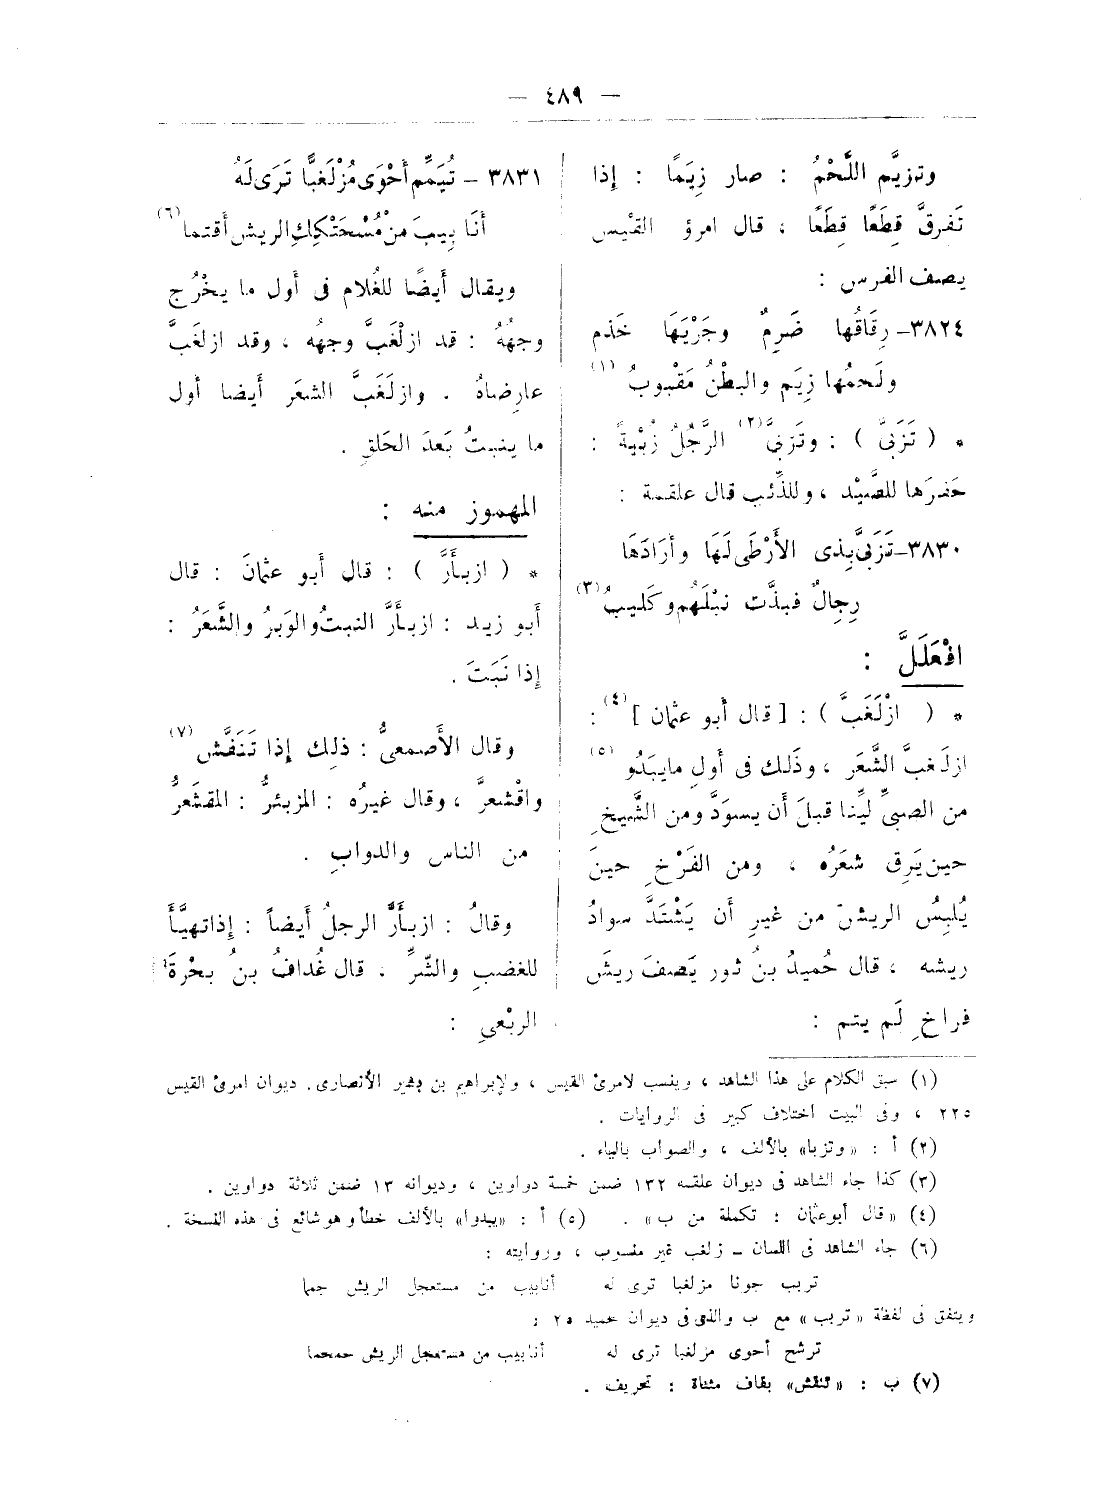 — ٤٨٩ —
وتزيَّم اللَّحْمُ : صار زِيَمًا : إذا
تَفرقَّ قِطَعًا قِطَعًا ، قال امرؤ القَيْس
يصف الفرس :
٣٨٢٤– رِقَاقُها ضَرِمٌ وجَرْيَهَا خَذم
ولَحمُها زِيَم والبطْنُ مَقْبوبُ (١)
* ( تَزَبَّى ) : وتَزبَّى (٢) الرَّجُلُ زُبْيةً :
حَفرَها للصَّيْد ، وللذِّئب قال علقمة :
٣٨٣٠– تَزَبَّى بذى الأَرْطَى لَهَا وأرَادَهَا
رِجالٌ فبذَّت نبْلَهُم وكَليبُ (٣)
افْعَلَلَّ :
* ( ازْلَغَبَّ ) : [ قال أبو عثمان ] (٤) :
ازلَغبَّ الشَّعَر ، وذَلك فى أولِ مايبَدُو (٥)
من الصبىِّ لَيِّنا قبلَ أن يسودَّ ومن الشَّيخِ
حين يَرِق شعَرُه ، ومن الفَرْخِ حينَ
يُلبِسُ الريش من غيرِ أن يَشْتَدَّ سوادُ
ريشه ، قال حُميدُ بنُ ثور يَصفَ ريشَ
فراخٍ لَم يتم :
٣٨٣١ – تُيَمِّم أحْوَى مُزْلَغبًّا تَرَى لَهُ
أنَا بِيبَ منْ مُسْحَنْكِكِ الريش أقتما (٦)
ويقال أيضًا للغُلام فى أول ما يخْرُج
وجهُهُ : قد ازلْغَبَّ وجهُه ، وقد ازلغَبَّ
عارِضاهُ . وازلَغَبَّ الشعَر أيضا أول
ما ينبتُ بَعدَ الحَلقِ .
المهموز منه :
* ( ازبأَرَّ ) : قال أبو عثمانَ : قال
أبو زيد : ازبأَرَّ النبتُ والوَبرُ والشَّعَرُ :
إذا نَبَتَ .
وقال الأصمعىُّ : ذلِك إذا تَنَفَّش (٧)
واقْشعرَّ ، وقال غيرُه : المزبئرُّ : المقشَعرُّ
من الناس والدوابِ .
وقالُ : ازبأَرَّ الرجلُ أيضاً : إذا تهيَّأَ
للغضبِ والشّرِّ ، قال غُدافُ بنُ بجْرةَ
الربْعىِ :
(١) سبق الكلام على هذا الشاهد ، وينسب لامرئ القيس ، ولإبراهيم بن بشير الأنصارى . ديوان امرئ القيس
٢٢٥ ، وفى البيت اختلاف كبير فى الروايات .
(٢) أ : «وتزبا» بالألف ، والصواب بالياء .
(٣) كذا جاء الشاهد فى ديوان علقمه ١٣٢ ضمن خمسة دواوين ، وديوانه ١٣ ضمن ثلاثة دواوين .
(٤) «قال أبو عثمان : تكملة من ب» . (٥) أ : «يبدوا» بالألف خطأ وهو شائع فى هذه النسخة .
(٦) جاء الشاهد فى اللسان – زلغب غير منسوب ، وروايته :
تربب جونا مزلغبا ترى له أنابيب من مستعجل الريش جمما
ويتفق فى لفظة «تربب» مع ب والذى فى ديوان حميد ٢٥ :
ترشح أحوى مزلغبا ترى له أنابيب من مستعجل الريش حمحما
(٧) ب : «تنقش» بقاف مثناة : تحريف .